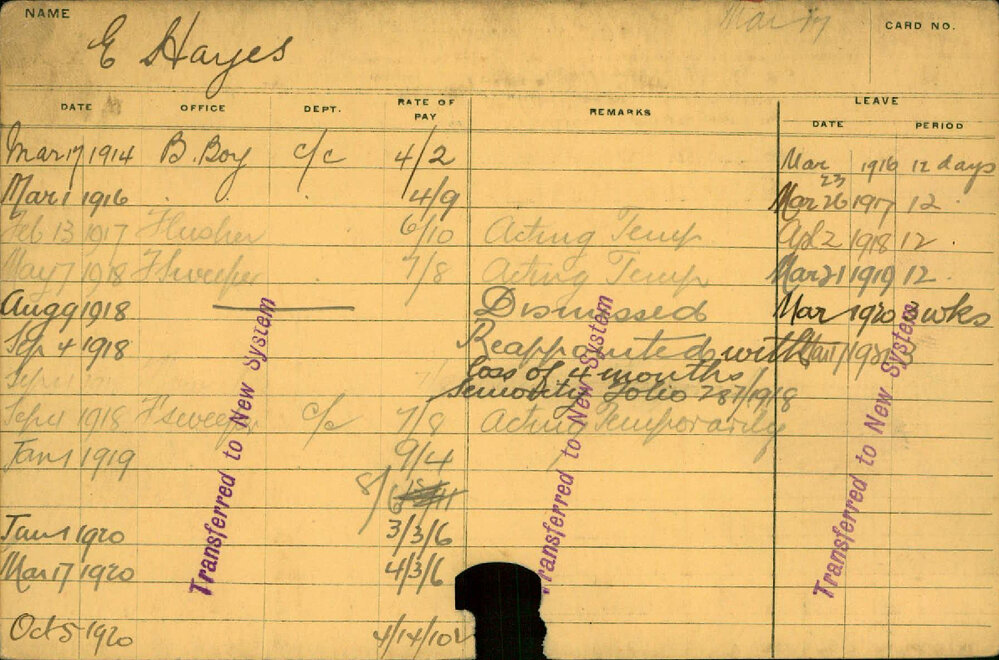 NAME
Mar 17
CARD NO.
E Hayes
DATE OFFICE DEPT. RATE OF PAY REMARKS LEAVE
DATE PERIOD
Mar 17 1914 B. Boy c/c 4/2 Mar 23 1916 12 days
Mar 1 1916 4/9 Mar 26 1917 12
Feb 13 1917 Flusher 6/10 Acting Temp Apl 2 1918 12
May 7 1918 F Sweeper 7/8 Acting Temp Mar 21 1919 12
Aug 9 1918 — Dismissed Mar 1920 wks
Sep 4 1918 Reappointed with
loss of 4 months
Seniority Folio 287/1918
Sep 4 1918 F sweeper c/c 7/8 Acting Temporarily
Jan 1 1919 9/4
8/6
Jan 1 1920 3/3/6
Mar 17 1920 4/3/6
Oct 5 1920 4/14/10
Transferred to New System
Transferred to New System
Transferred to New System